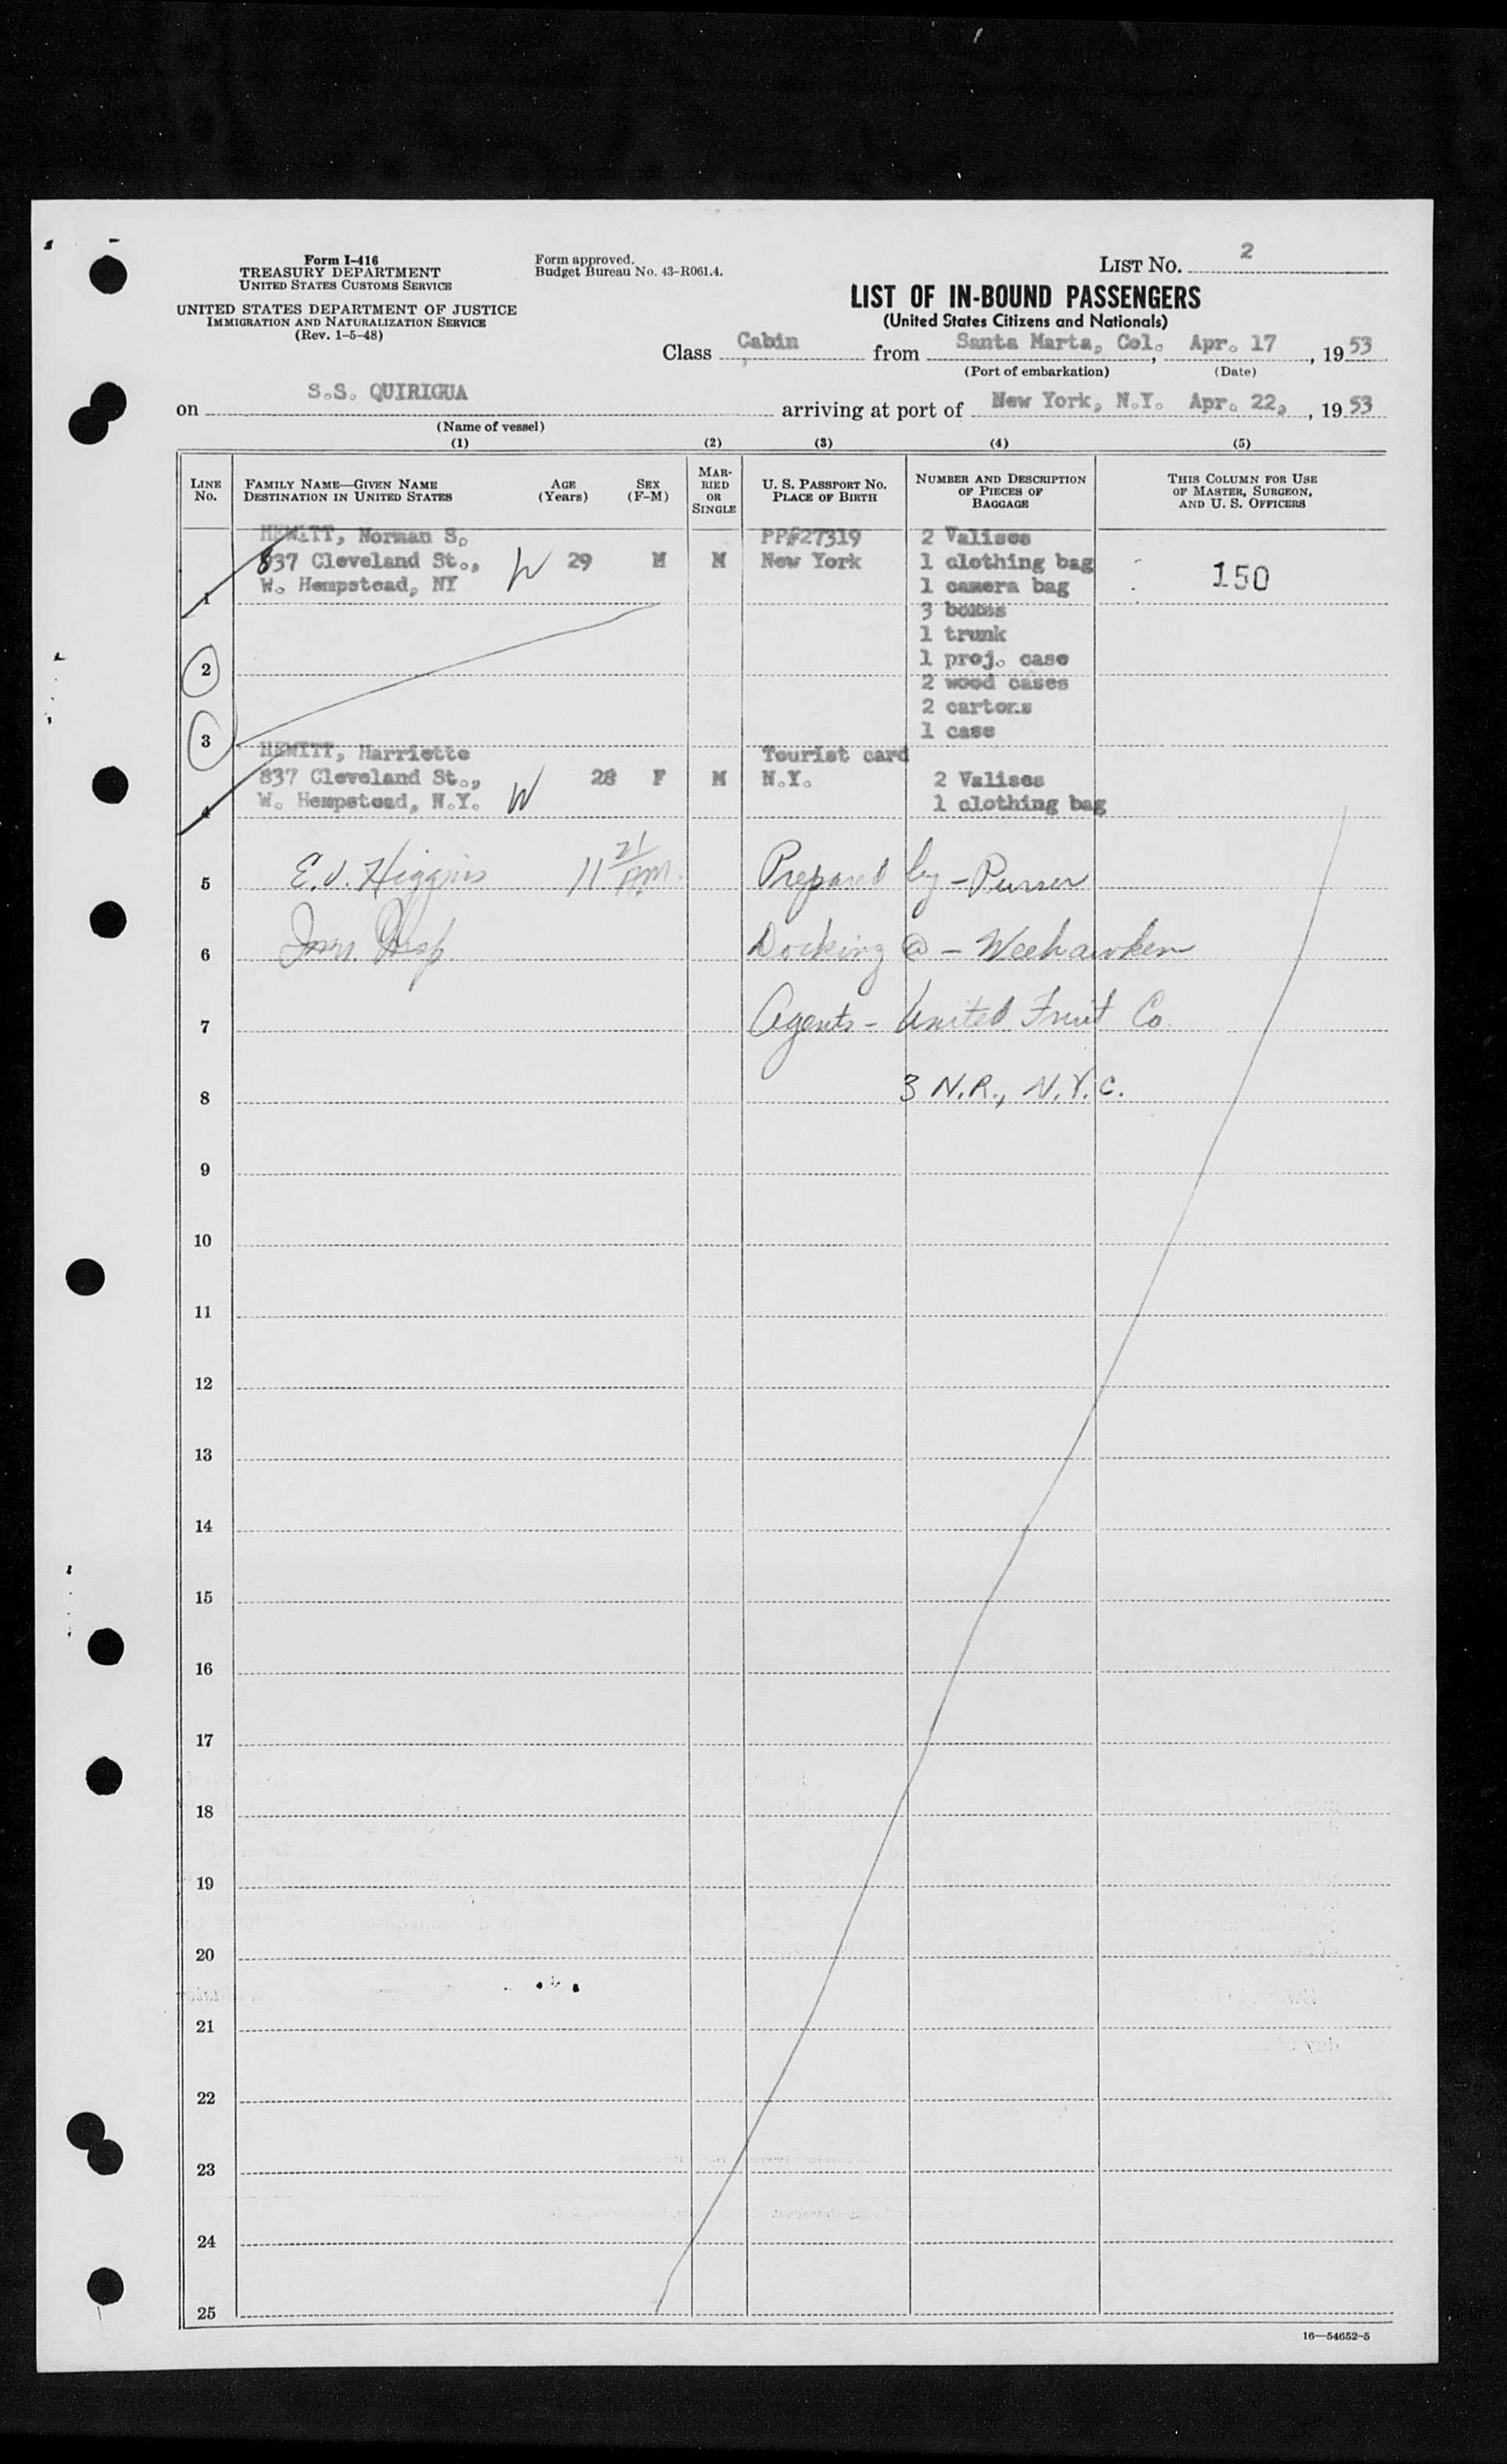 Form I-416
TREASURY DEPARTMENT
UNITED STATES CUSTOMS SERVICE
UNITED STATES DEPARTMENT OF JUSTICE
IMMIGRATION AND NATURALIZATION SERVICE
(Rev. 1-5-48)
Form approved.
Budget Bureau No. 43-R061.4.
LIST No. 2
LIST OF IN-BOUND PASSENGERS
(United States Citizens and Nationals)
Class Cabin from Santa Marta, Col., Apr. 17, 1953
(Port of embarkation) (Date)
on S.S. QUIRIGUA arriving at port of New York, N.Y. Apr. 22, , 1953
(Name of vessel)
(1) (2) (3) (4) (5)
LINE No.
FAMILY NAME—GIVEN NAME
DESTINATION IN UNITED STATES
AGE (Years)
SEX (F-M)
MARRIED OR SINGLE
U. S. PASSPORT No.
PLACE OF BIRTH
NUMBER AND DESCRIPTION OF PIECES OF BAGGAGE
THIS COLUMN FOR USE OF MASTER, SURGEON, AND U. S. OFFICERS
HEWITT, Norman S. PP#27319 2 Valises
837 Cleveland St., W 29 M M New York 1 clothing bag 150
1 W. Hempstead, NY 1 camera bag
3 boxes
1 trunk
2 1 proj. case
2 wood cases
2 cartons
3 1 case
HEWITT, Harriette Tourist card
837 Cleveland St., 28 F M N.Y. 2 Valises
4 W. Hempstead, N.Y. W 1 clothing bag
5 E.J. Higgins 11 21 AM. Prepared by - Purser
6 Imm. Insp. Docking @ - Weehawken
7 Agents - United Fruit Co.
8 3 N.R., N.Y.C.
9
10
11
12
13
14
15
16
17
18
19
20
21
22
23
24
25
16—54652-5